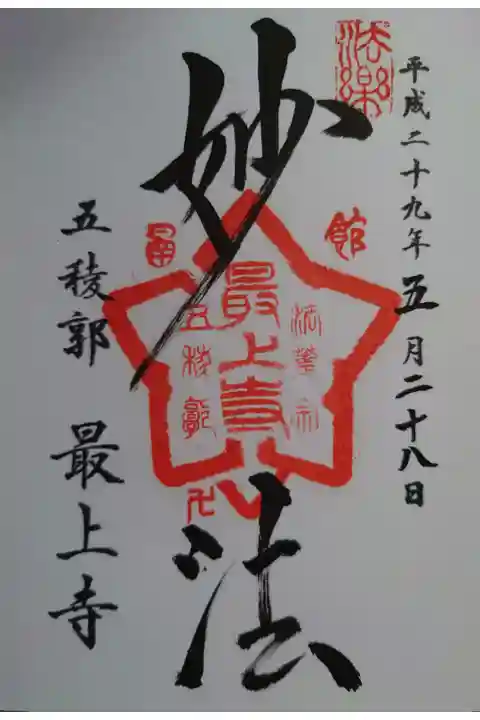 平成二十九年五月二十八日
法楽
妙法
函館
法華宗
最上寺
五稜郭
卍
五稜郭 最上寺